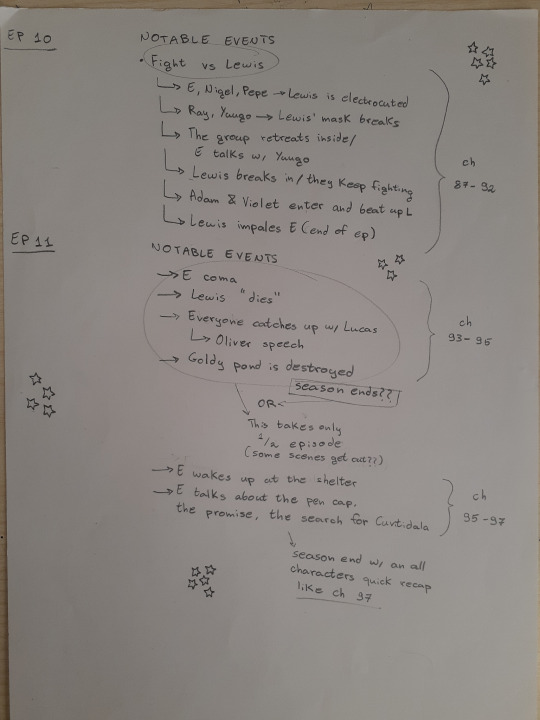 EP 10
NOTABLE EVENTS
• Fight vs Lewis
↳ E, Nigel, Pepe → Lewis is electrocuted
↳ Ray, Yuugo → Lewis' mask breaks
↳ The group retreats inside/
E talks w, Yuugo
↳ Lewis breaks in/they keep fighting
↳ Adam & Violet enter and beat up L
↳ Lewis impales E (end of ep)
ch
87-92
EP 11
NOTABLE EVENTS
→ E coma
→ Lewis "dies"
→ Everyone catches up w/ Lucas
↳ Oliver speech
→ Goldy pond is destroyed
season ends??
ch
93-95
OR
This takes only
1/2 episode
(some scenes get cut??)
→ E wakes up at the shelter
→ E talks about the pen cap,
the promise, the search for Cuvitidala
ch
95-97
season end w, an all
characters quick recap
like ch 97